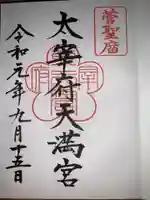 菅聖庿
太宰府天満宮
令和元年九月十五日